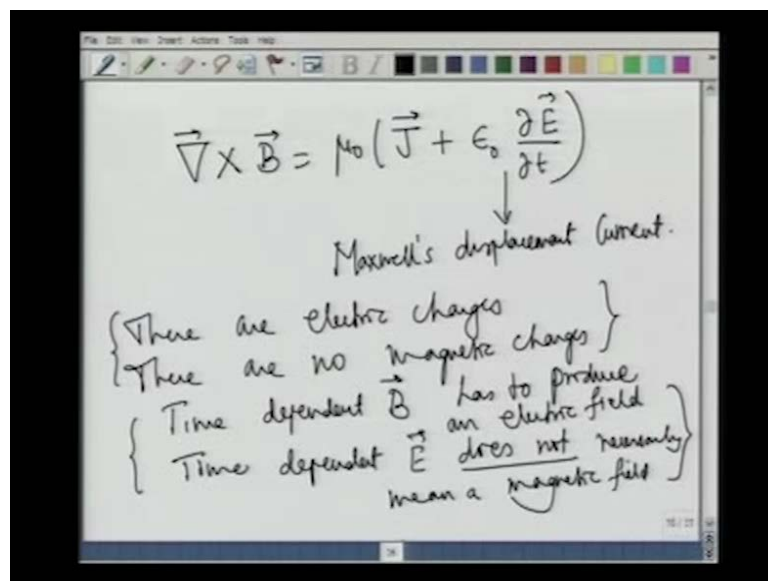 File Edit View Insert Actions Tools Help
B I
∇⃗ × B⃗ = μ₀ ( J⃗ + ε₀ ∂E⃗/∂t )
↓
Maxwell's displacement Current.
{ There are electric charges
There are no magnetic charges }
{ Time dependent B⃗ has to produce
an electric field
Time dependent E⃗ does not necessarily
mean a magnetic field }